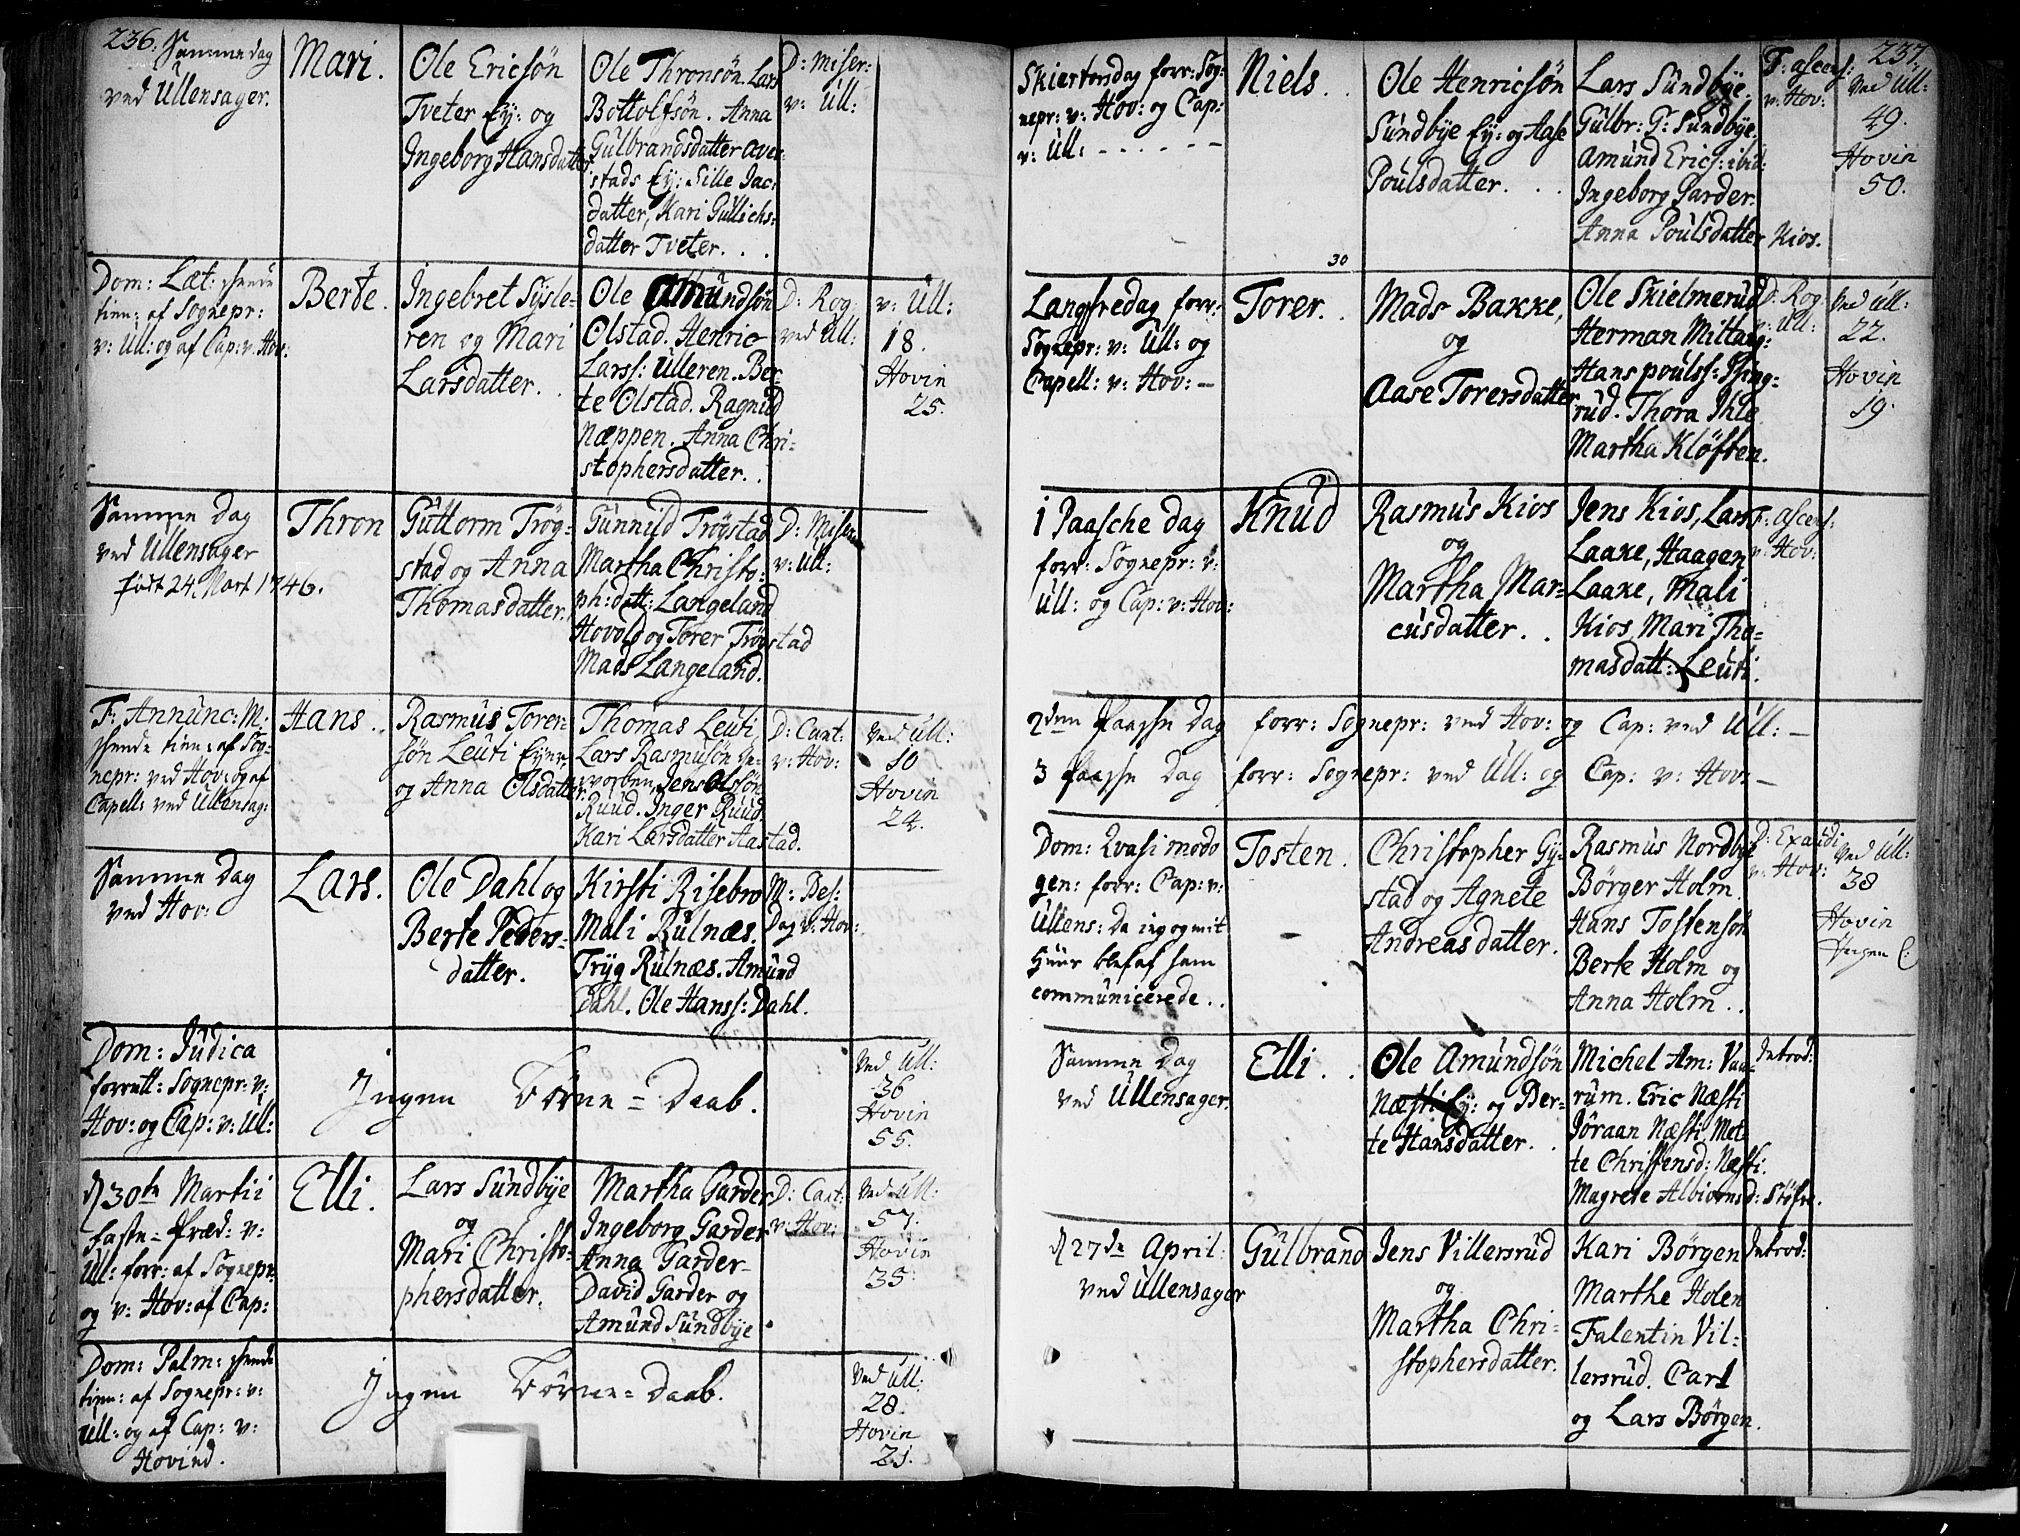 236.
Samme dag
ved Ullensager.
Mari.
Ole Ericsön
Tveter Ey: og
Ingeborg Hansdatter
Ole Thronsön. Lars
Bottolfsön. Anna
Gulbrandsdatter Aver-
stads Ey: Sille Jac:
datter, Kari Gullichs:
datter Tveter. . .
D: Miser:
v: Ull:
Dom: Læt:
tien: af Sognepr:
v: Ull: og af Cap: v: Hov:
Berte.
Ingebret Sysle-
ren og Mari
Larsdatter. .
Ole Amundsön
Olstad. Henric
Larss: Ulleren. Ber-
te Olstad. Ragnild
Næppen. Anna Chri-
stophersdatter. .
D: Rog:
ved Ull:
v: Ull:
18.
Hovin
25.
Samme Dag
ved Ullensager
født 24 Mart 1746.
Thron
Guttorm Trög-
stad og Anna
Thomasdatter.
Gunnild Trögstad
Martha Christo-
ph: datt: Langeland
Hovold og Torer Trögstad
Mads Langeland.
D: Miser:
v: Ull:
F: Annunc: M:
tien: af Sog-
nepr: ved Hov: og af
Capell: ved Ullensag:
Hans.
Rasmus Torer-
sön Leuti Eyer,
og Anna Olsdatter.
Thomas Leuti,
Lars Rasmusön
Jens Olsön
Ruud. Inger Ruud.
Kari Larsdatter Aastad.
D: Cant:
v: Hov:
Ved Ull:
10
Hovin
24.
Samme Dag
ved Hov:
Lars.
Ole Dahl og
Berte Peders-
datter.
Kirsti Risebro
Mali Rulnæs.
Tryg Rulnæs. Amund
Dahl. Ole Hanss: Dahl.
M: Bes:
Dag v: Hov:
Dom: Judica
forrett: Sognepr: v:
Hov: og Cap: v: Ull:
Ingen Börne-Daab.
Ved Ull:
36
Hovin
55.
d 30te Martii
faste-Præd: v:
Ull: forr: af Sognepr
og v: Hov: af Cap:
Elli.
Lars Sundbye
og
Mari Christo-
phersdatter.
Martha Garder
Ingeborg Garder
Anna Garder-
David Garder og
Amund Sundbye.
D: Cant:
v: Hov:
Ved Ull:
57.
Hovin
35.
Dom: Palm:
tien: af Sognepr: v:
Ull: og af Cap: v:
Hovind.
Ingen Börne-Daab.
Ved Ull:
28.
Hovin
21.
237.
Skiertorsdag forr: Sog-
nepr: v: Hov: og Cap:
v: Ull: - - - - - -
Niels. .
Ole Henricsön
Sundbye Ey: og Aase
Poulsdatter. . .
Lars Sundbye.
Gulbr: G: Sundbye.
Amund Erics: ibid:
Ingeborg Garder.
Anna Poulsdatter Kios.
F: ascens:
v: Hov:
Ved Ull:
49.
Hovin
50.
30
Langfredag forr:
Sognepr: v: Ull: og
Capell: v: Hov: -
Torer. .
Mads Bakke,
og
Aase Torersdatter
Ole Skielmerud
Herman Mittag:
Hans pouls:
rud. Thora Ihle
Martha Klöften.
D: Rog:
v: Ull:
Ved Ull:
22.
Hovin
19.
1 Paasche Dag
forr: Sognepr: v:
Ull: og Cap: v: Hov:
Knud
Rasmus Kios
og
Martha Mar-
cusdatter. .
Jens Kios, Lars
Laake, Haagen
Laake, Mali
Kios, Mari Tho-
masdatt: Leuti.
F: Ascens:
v: Hov:
2den Paasche Dag forr: Sognepr: ved Hov: og Cap: ved Ull: -
3 Paasche Dag forr: Sognepr: ved Ull: og Cap: v: Hov: -
Dom: Qvasi modo
gen: forr: Cap: v:
Ullens: Da ieg og mit
Huus blef af ham
communicerede. .
Tosten.
Christopher Gy-
stad og Agnete
Andreasdatter.
Rasmus Nordbye
Börger Holm.
Hans Tostensön
Berte Holm og
Anna Holm . .
D: Exaudi
v: Hov:
Ved Ull:
38
Hovin
Ingen C:
Samme Dag
ved Ullensager.
Elli. .
Ole Amundsön
Næsti Ey: og Ber-
te Hansdatter. .
Michel Am: Vaa-
rum. Eric Næsti
Jöraan Næsti. Met-
te Christensd: Næsti.
Magrete Albionsd: Styfre.
Introd:
d 27de April.
ved Ullensager
Gulbrand
Jens Villersrud
og
Martha Chri-
stophersdatter.
Kari Börgen
Marthe Holen
Falentin Vil-
lersrud. Carl
og Lars Börgen.
Introd: